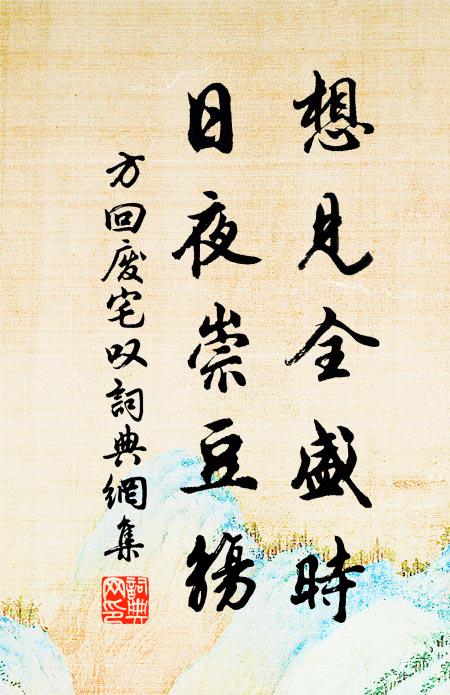 想見全盛時
日夜崇豆觴
方回廢宅叹詞典網集
詞典网印